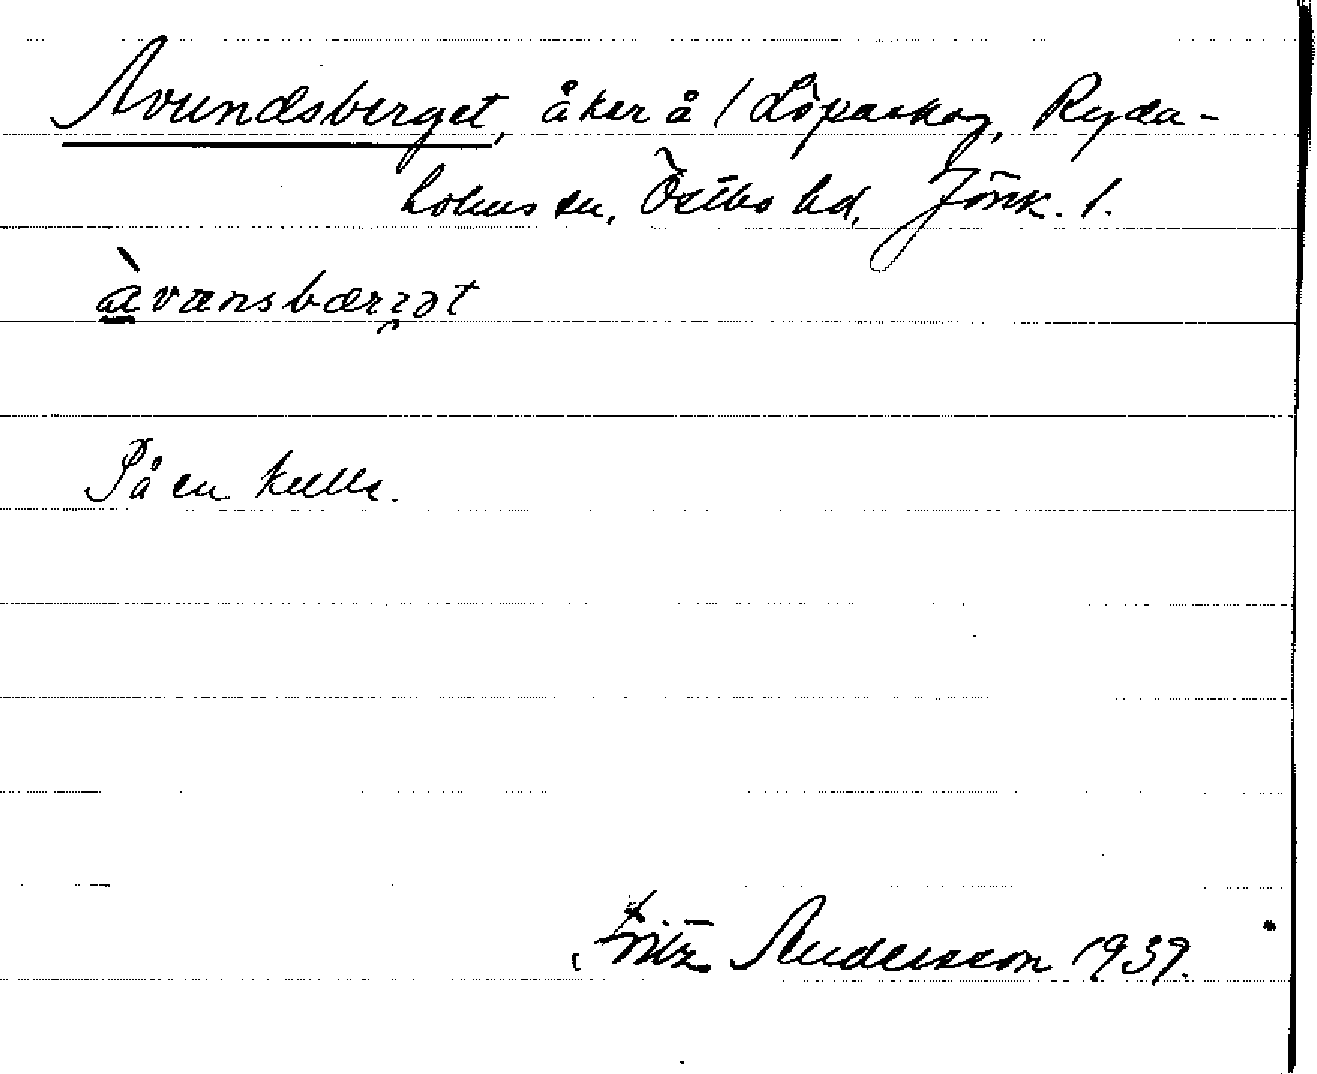 Avundsberget, åker å / Löpaskog, Ryda-
holms sn, Östbo hd, Jönk. l.
àvænsbærɜət
På en kulle.
Fritz Andersson 1939.